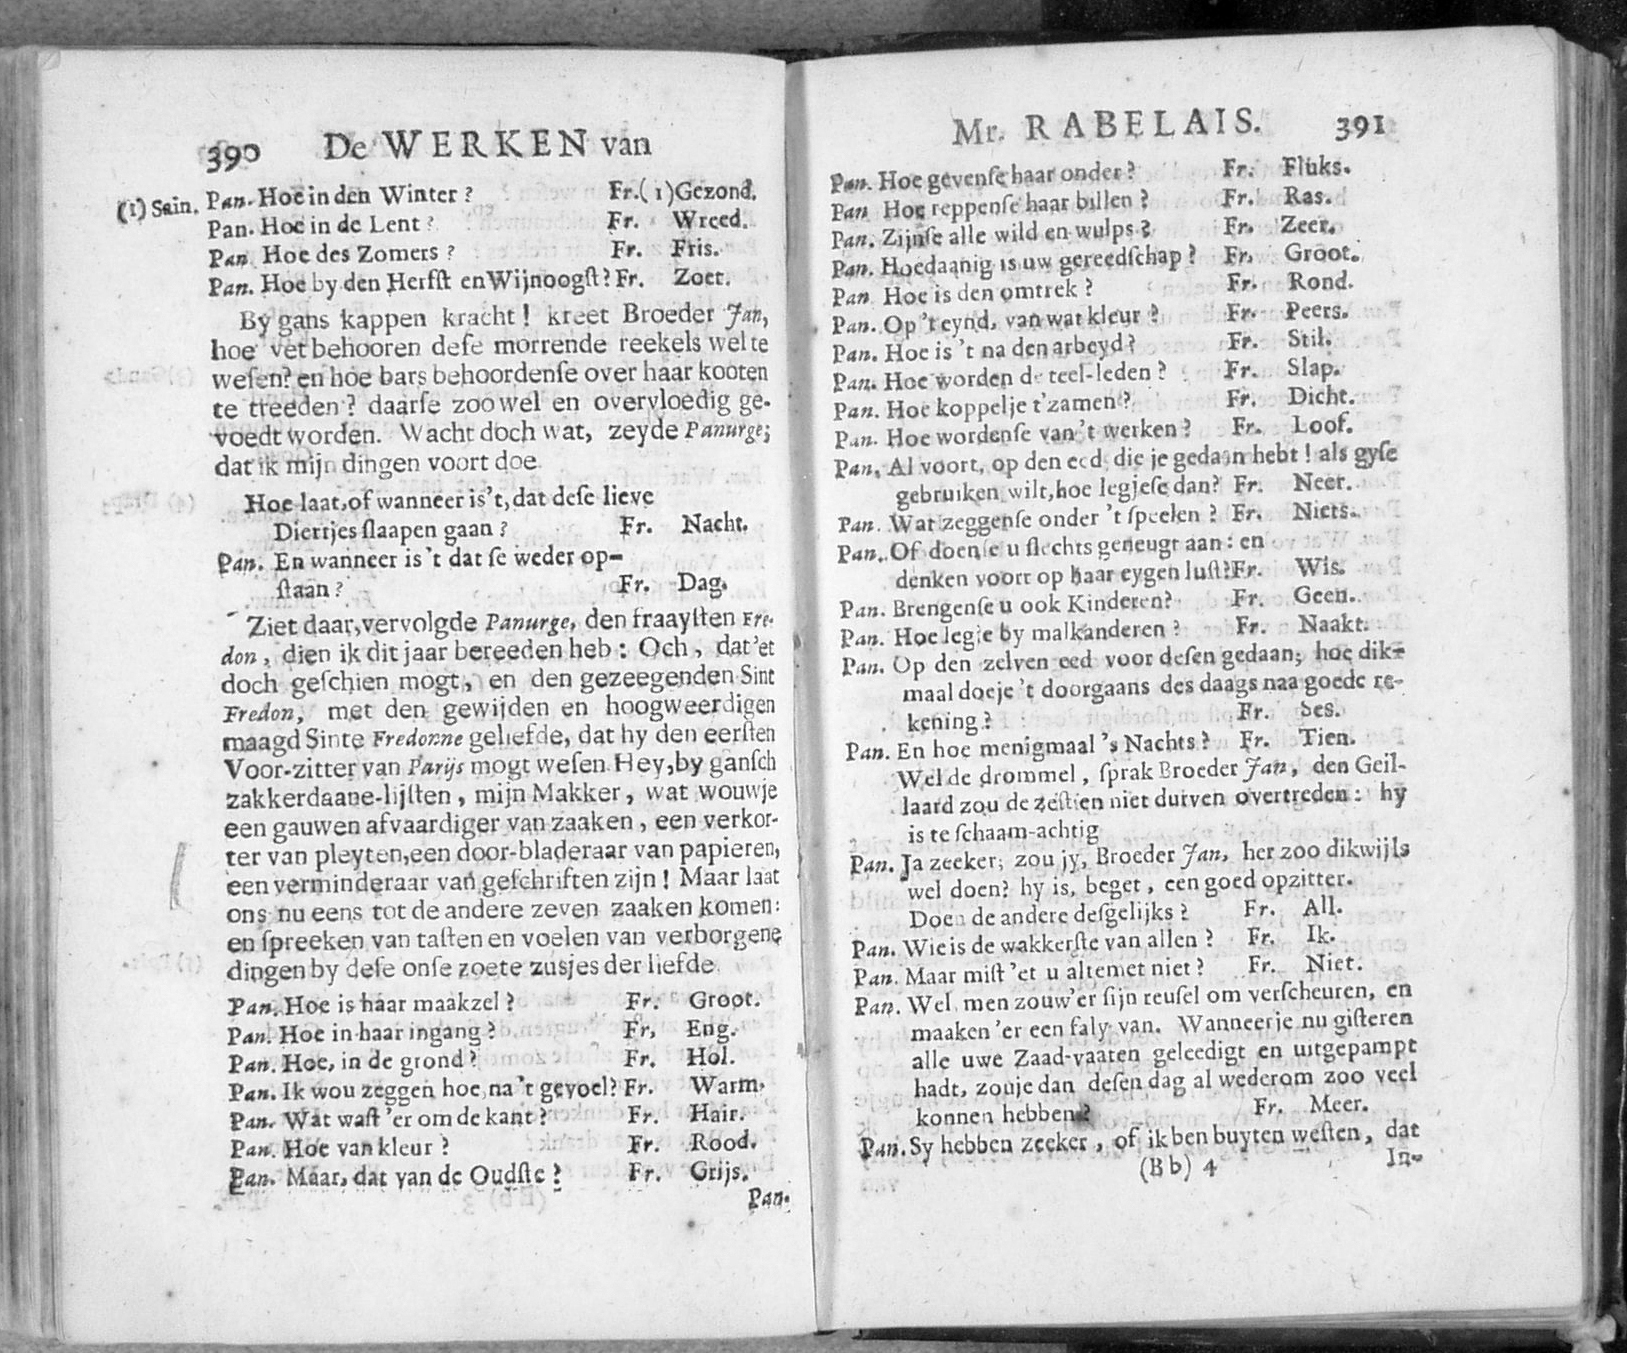 390 De WERKEN van
(1) Sain. Pan. Hoe in den Winter? Fr.(1)Gezond.
Pan. Hoe in de Lent? Fr. Wreed.
Pan. Hoe des Zomers? Fr. Fris.
Pan. Hoe by den Herfst en Wijnoogst? Fr. Zoet.
By gans kappen kracht! kreet Broeder Jan,
hoe vet behooren dese morrende reekels wel te
wesen? en hoe bars behoordense over haar kooten
te treeden? daarse zoo wel en overvloedig ge-
voedt worden. Wacht doch wat, zeyde Panurge;
dat ik mijn dingen voort doe.
Hoe laat, of wanneer is't, dat dese lieve
Diertjes slaapen gaan? Fr. Nacht.
Pan. En wanneer is 't dat se weder op-
staan? Fr. Dag.
Ziet daar, vervolgde Panurge, den fraaysten Fre-
don, dien ik dit jaar bereeden heb: Och, dat'et
doch geschien mogt, en den gezeegenden Sint
Fredon, met den gewijden en hoogweerdigen
maagd Sinte Fredonne geliefde, dat hy den eersten
Voor-zitter van Parijs mogt wesen. Hey, by gansch
zakkerdaane-lijsten, mijn Makker, wat wouwje
een gauwen afvaardiger van zaaken, een verkor-
ter van pleyten, een door-bladeraar van papieren,
een verminderaar van geschriften zijn! Maar laat
ons nu eens tot de andere zeven zaaken komen:
en spreeken van tasten en voelen van verborgene
dingen by dese onse zoete zusjes der liefde.
Pan. Hoe is haar maakzel? Fr. Groot.
Pan. Hoe in haar ingang? Fr, Eng.
Pan. Hoe, in de grond? Fr. Hol.
Pan. Ik wou zeggen hoe, na 't gevoel? Fr. Warm.
Pan. Wat wast 'er om de kant? Fr. Hair.
Pan. Hoe van kleur? Fr. Rood.
Pan. Maar, dat van de Oudste? Fr. Grijs.
Pan.
Mr. RABELAIS. 391
Pan. Hoe gevense haar onder? Fr. Fluks.
Pan Hoe reppense haar billen? Fr. Ras.
Pan. Zijnse alle wild en wulps? Fr. Zeer.
Pan. Hoedaanig is uw gereedschap? Fr. Groot.
Pan Hoe is den omtrek? Fr. Rond.
Pan. Op 't eynd, van wat kleur? Fr. Peers.
Pan. Hoe is 't na den arbeyd? Fr. Stil.
Pan. Hoe worden de teel-leden? Fr. Slap.
Pan. Hoe koppelje t'zamen? Fr. Dicht.
Pan. Hoe wordense van 't werken? Fr. Loof.
Pan. Al voort, op den eed, die je gedaan hebt! als gyse
gebruiken wilt, hoe legjese dan? Fr. Neer.
Pan. Wat zeggense onder 't speelen? Fr. Niets.
Pan. Of doense u slechts geneugt aan: en
denken voort op haar eygen lust? Fr. Wis.
Pan. Brengense u ook Kinderen? Fr. Geen.
Pan. Hoe legje by malkanderen? Fr. Naakt.
Pan. Op den zelven eed voor desen gedaan; hoe dik-
maal doeje 't doorgaans des daags naa goede re-
kening? Fr. Ses.
Pan. En hoe menigmaal 's Nachts? Fr. Tien.
Wel de drommel, sprak Broeder Jan, den Geil-
laard zou de zestien niet durven overtreden: hy
is te schaam-achtig
Pan. Ja zeeker, zou jy, Broeder Jan, het zoo dikwijls
wel doen? hy is, beget, een goed opzitter.
Doen de andere desgelijks? Fr. All.
Pan. Wie is de wakkerste van allen? Fr. Ik.
Pan. Maar mist 'et u altemet niet? Fr. Niet.
Pan. Wel, men zouw'er sijn reusel om verscheuren, en
maaken 'er een saly van. Wanneerje nu gisteren
alle uwe Zaad-vaaten geleedigt en uitgepampt
hadt, zouje dan desen dag al wederom zoo veel
konnen hebben? Fr. Meer.
Pan. Sy hebben zeeker, of ik ben buyten westen, dat
(Bb) 4 In-